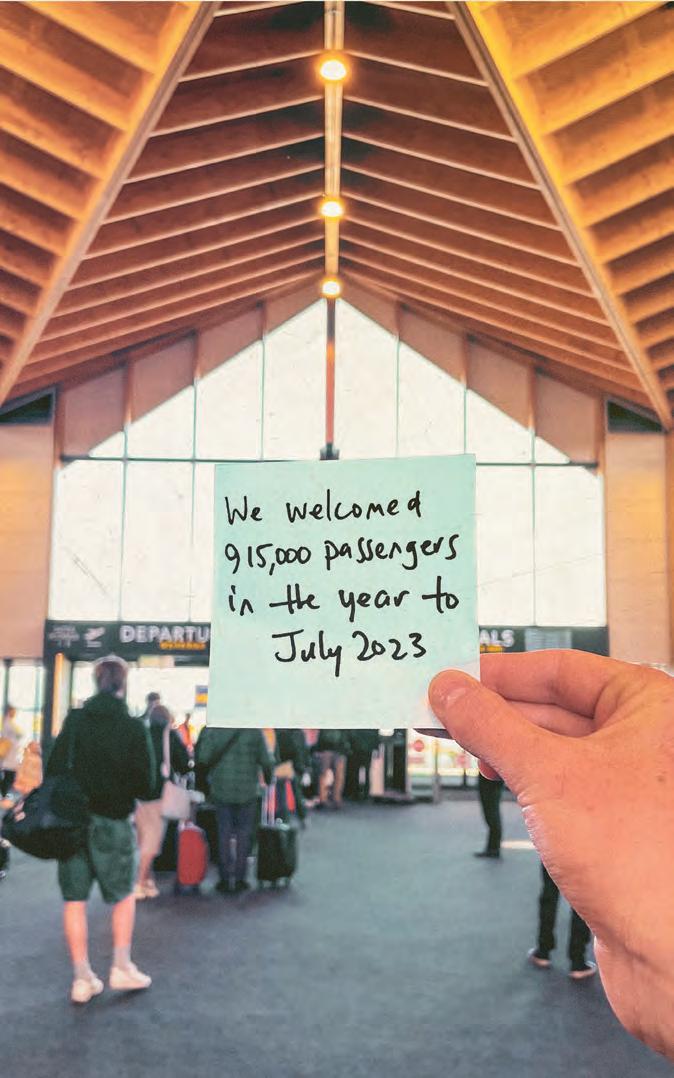 We welcomed
915,000 passengers
in the year to
July 2023
DEPARTU
ALS